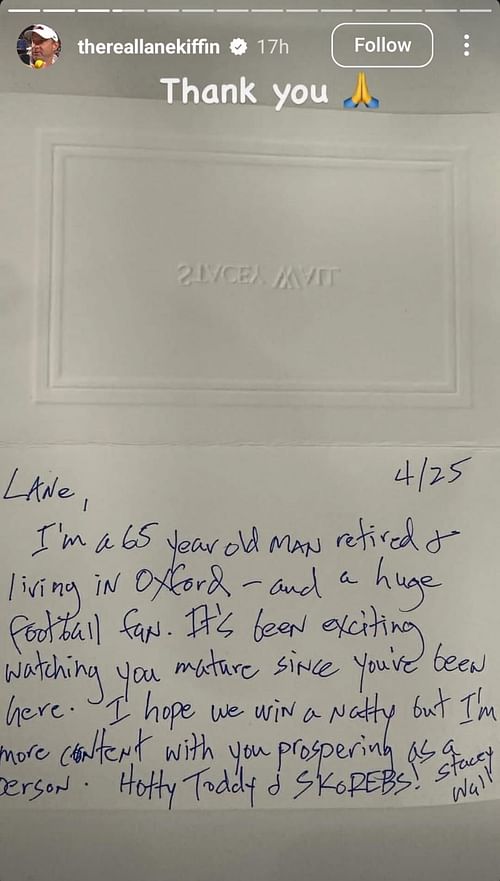 thereallanekiffin 17h Follow
Thank you 🙏
STACEY WALL
4/25
LANe,
I'm a 65 year old MAN retired &
living in Oxford - and a huge
football fan. It's been exciting
watching you mature since you've been
here. I hope we win a natty but I'm
more content with you prospering as a
person. Hotty Toddy & SKoREBS! Stacey
Wall